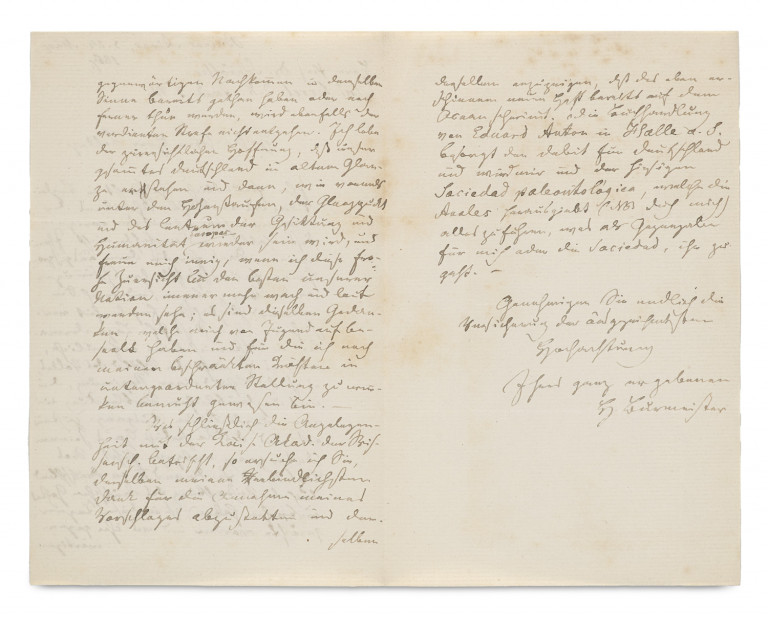 gegenwärtigen Nachkomen in demselben
Sinne bereits gethan haben oder noch
ferner thun werden, wird ebenfalls der
verdienten Strafe nicht entgehen. Ich lebe
der zuversichtlichen Hoffnung, daß unser
gesamtes Deutschland in altem Glan-
ze erstehen und dann, wie vormals
unter den Hohenstaufen, der Glanzpunkt
und das Centrum der Gesittung und
Humanität europas wieder sein wird, und
freue mich innig, wenn ich diese fro-
he Zuversicht bei den besten unserer
Nation immer mehr wach und laut
werden sehe; es sind dieselben Gedan-
ken, welche mich von Jugend auf be-
seelt haben und für die ich nach
meinen beschränkten Kräften in
untergeordneter Stellung zu wir-
ken bemüht gewesen bin. —
Was schließlich die Angelegen-
heit mit der Kais. Akad. der Wis-
sensch. betrifft, so ersuche ich Sie,
derselben meinen verbindlichsten
Dank für die Annahme meines
Vorschlages abzustatten und der-
selben
derselben anzuzeigen, daß das eben er-
schienene neue Heft bereits auf dem
Ocean schwimt; die Buchhandlung
von Eduard Anton in Halle a. S.
besorgt den debit für Deutschland
und wird mir und der hiesigen
Sociedad paleontologica, welche die
Anales herausgiebt (NB durch mich)
alles zuführen, was als Gegengabe
für mich oder die Sociedad, ihr zu-
geht. —
Genehmigen Sie endlich die
Versicherung der ausgezeichnetsten
Hochachtung
Ihres ganz ergebenen
H Burmeister